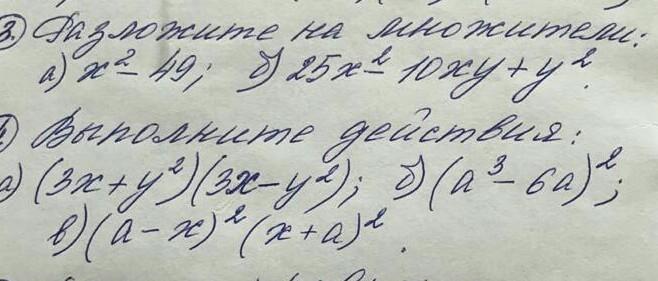 3. Разложите на множители:
а) x² - 49; б) 25x² - 10xy + y².
Выполните действия:
а) (3x + y²)(3x - y²); б) (a³ - 6a)²;
в) (a - x)² (x + a)².